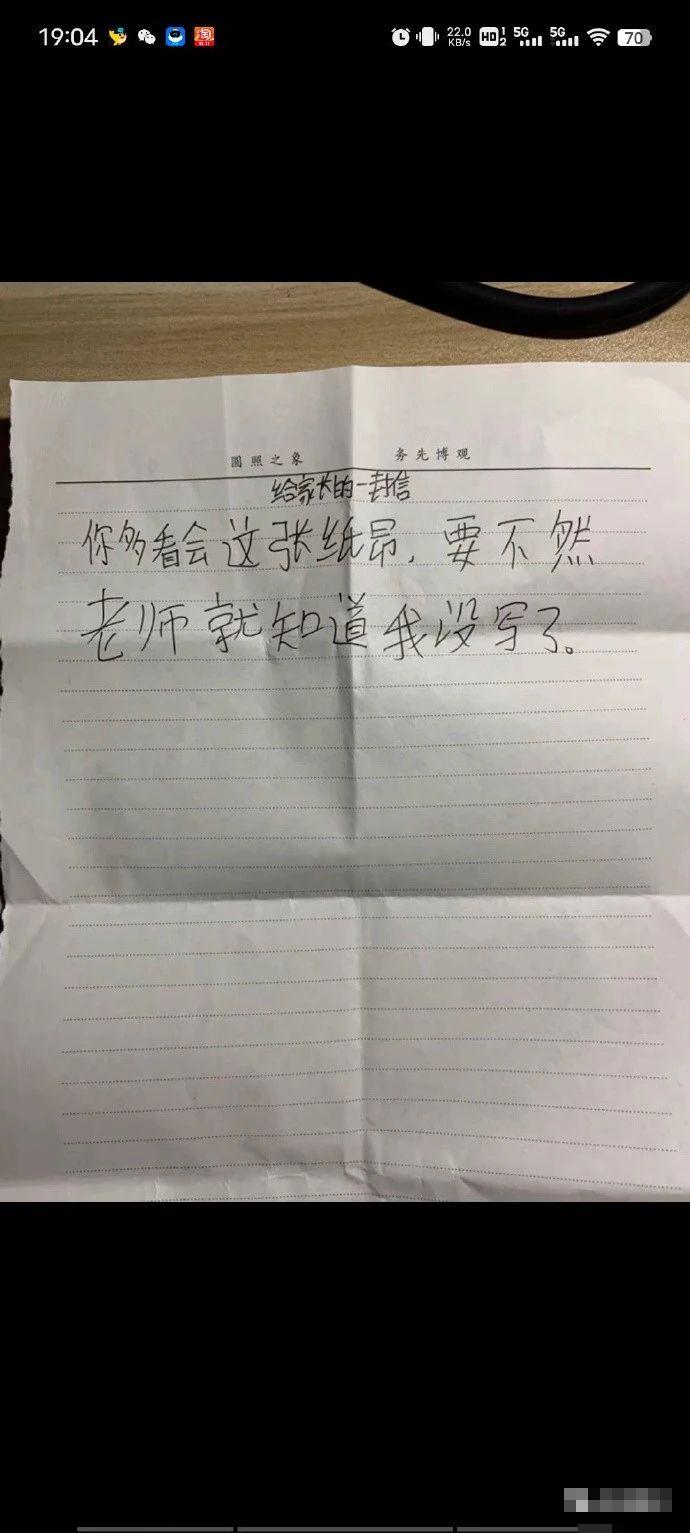 19:04 淘 22.0 KB/s HD 1 2 5G 5G 70
圆照之象 务先博观
给家长的一封信
你多看会这张纸昂,要不然
老师就知道我没写了。